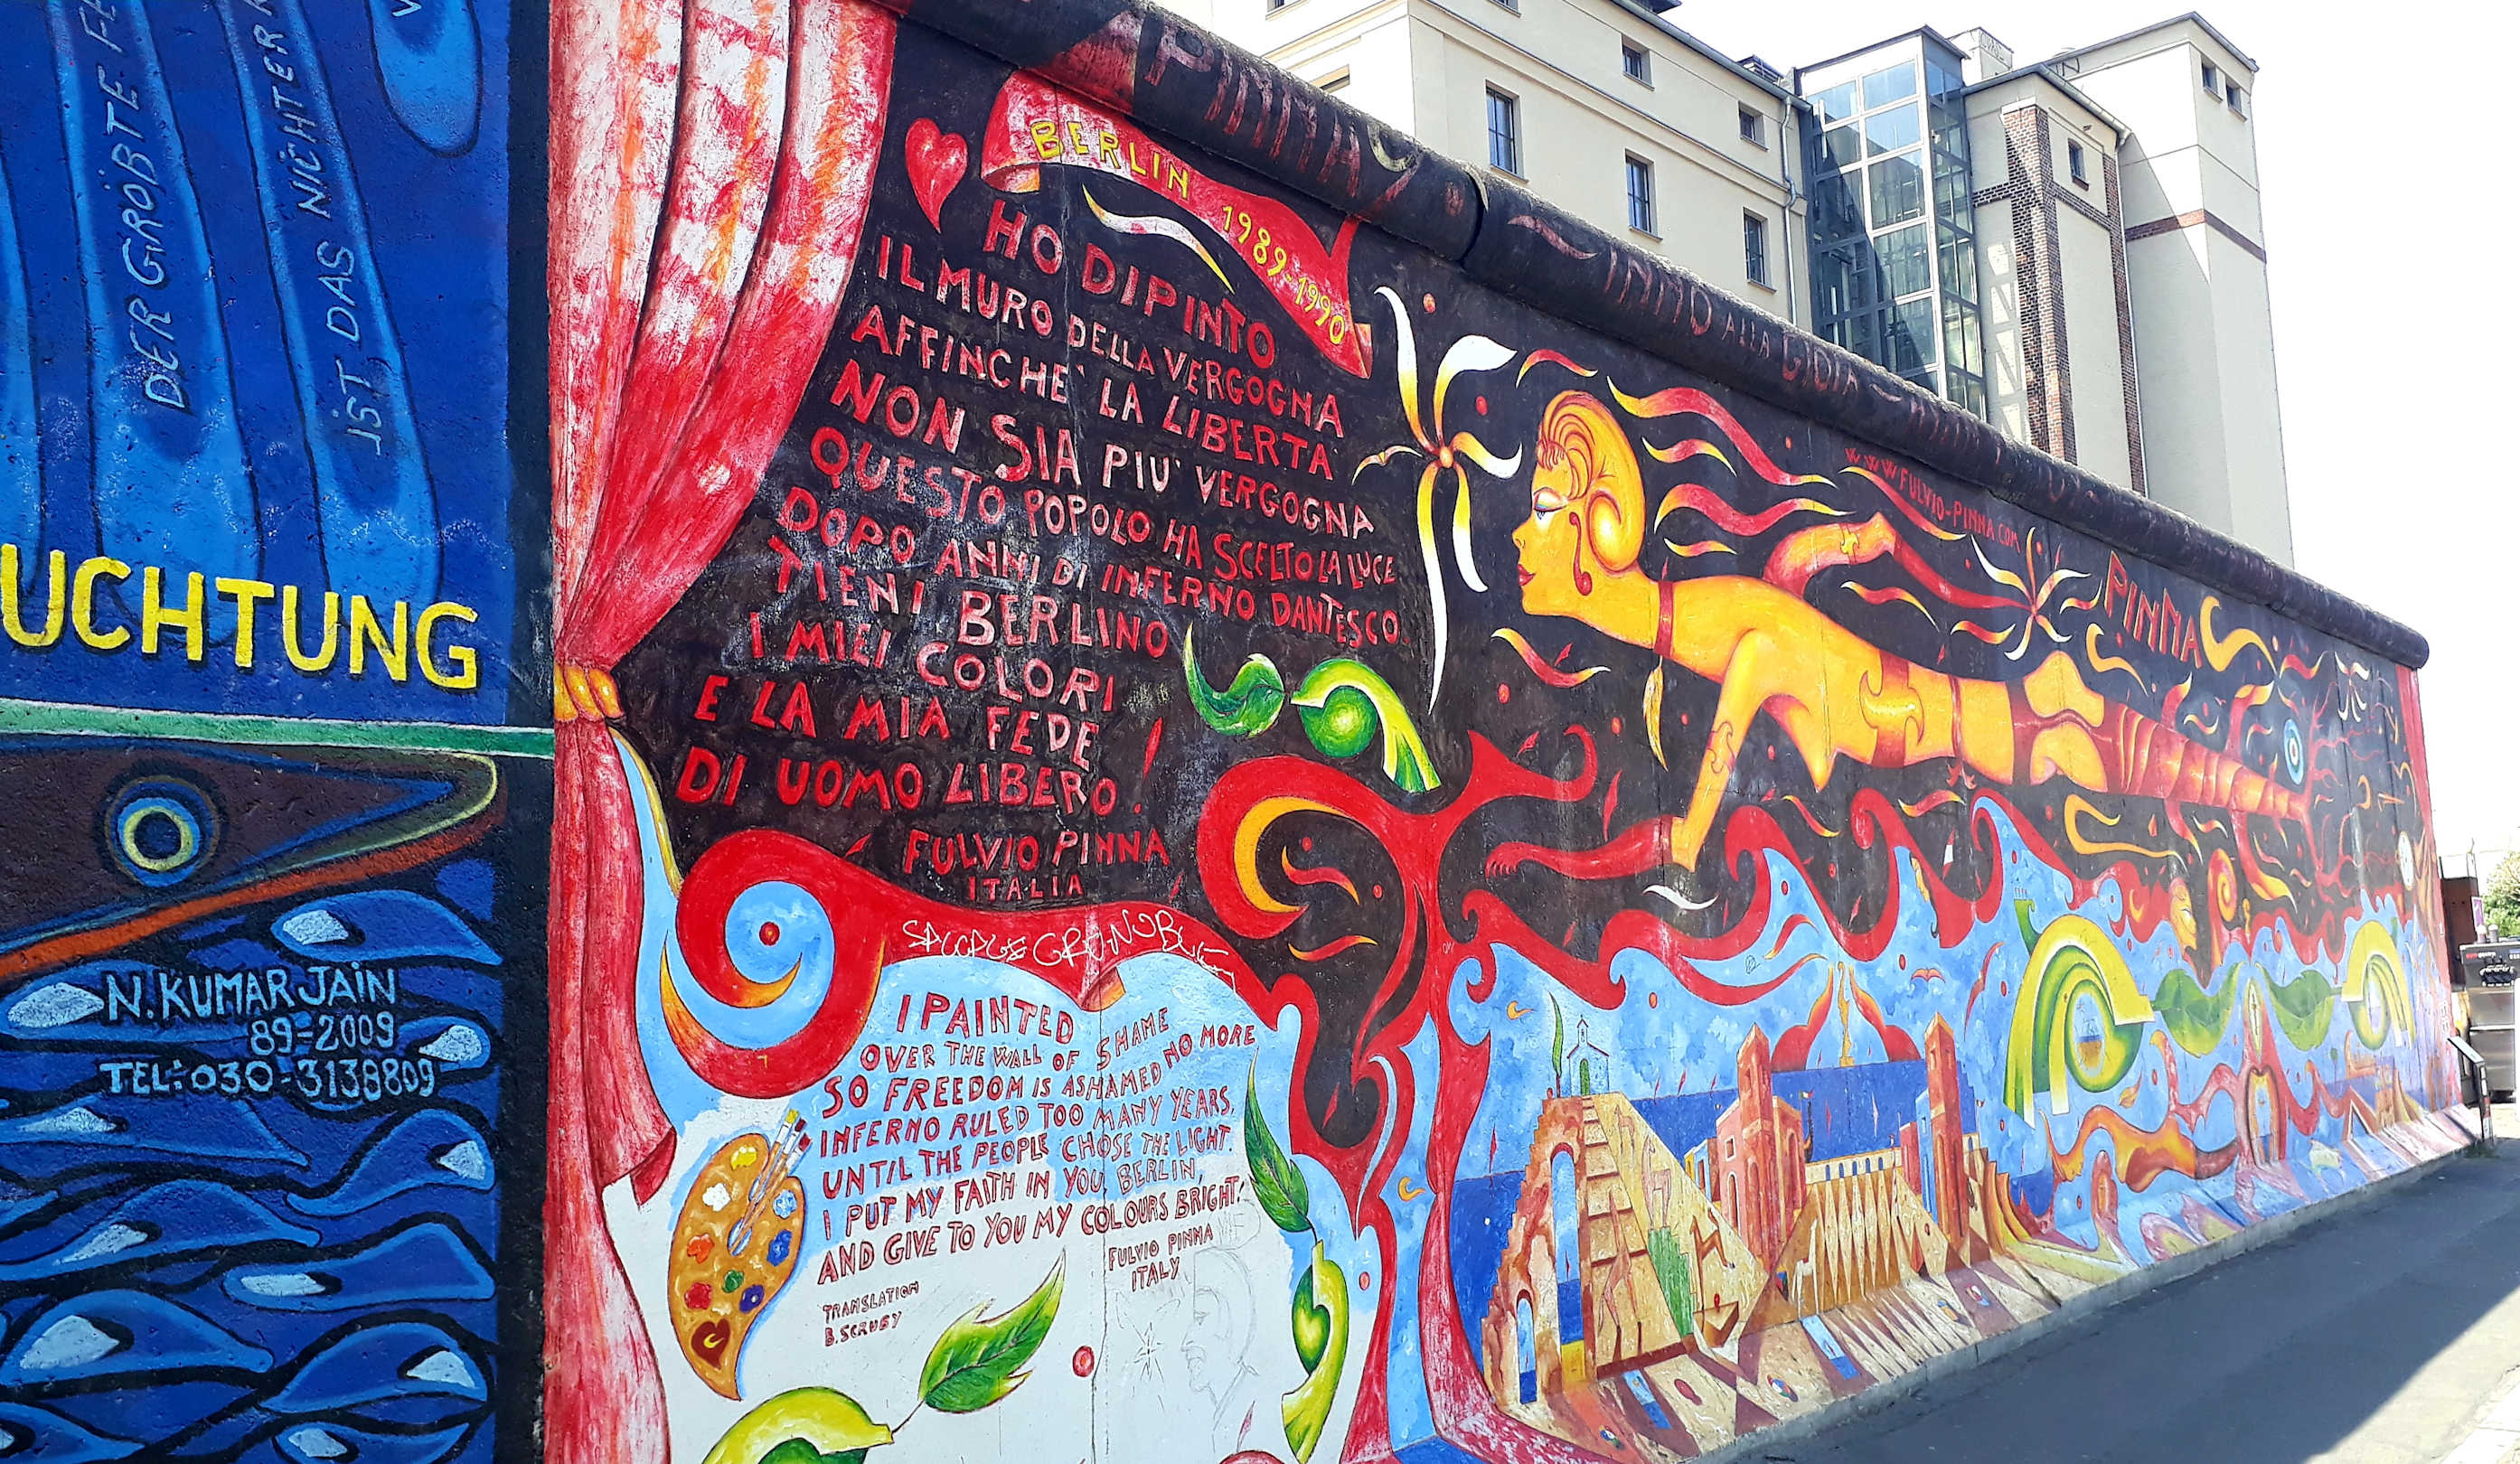 DER GRÖBTE
IST DAS NICHTER
UCHTUNG
N. KUMAR JAIN
89-2009
TEL: 030-3138809
PINNA
BERLIN 1989-1990
HO DIPINTO
IL MURO DELLA VERGOGNA
AFFINCHE' LA LIBERTA'
NON SIA PIU' VERGOGNA
QUESTO POPOLO HA SCELTO LA LUCE
DOPO ANNI DI INFERNO DANTESCO.
TIENI BERLINO
I MIEI COLORI
E LA MIA FEDE
DI UOMO LIBERO!
FULVIO PINNA
ITALIA
I PAINTED
OVER THE WALL OF SHAME
SO FREEDOM IS ASHAMED NO MORE
INFERNO RULED TOO MANY YEARS,
UNTIL THE PEOPLE CHOSE THE LIGHT.
I PUT MY FAITH IN YOU, BERLIN,
AND GIVE TO YOU MY COLOURS BRIGHT!
FULVIO PINNA
ITALY
TRANSLATION
B. SCRUBY
INNO ALLA GIOIA
WWW.FULVIO-PINNA.COM
PINNA